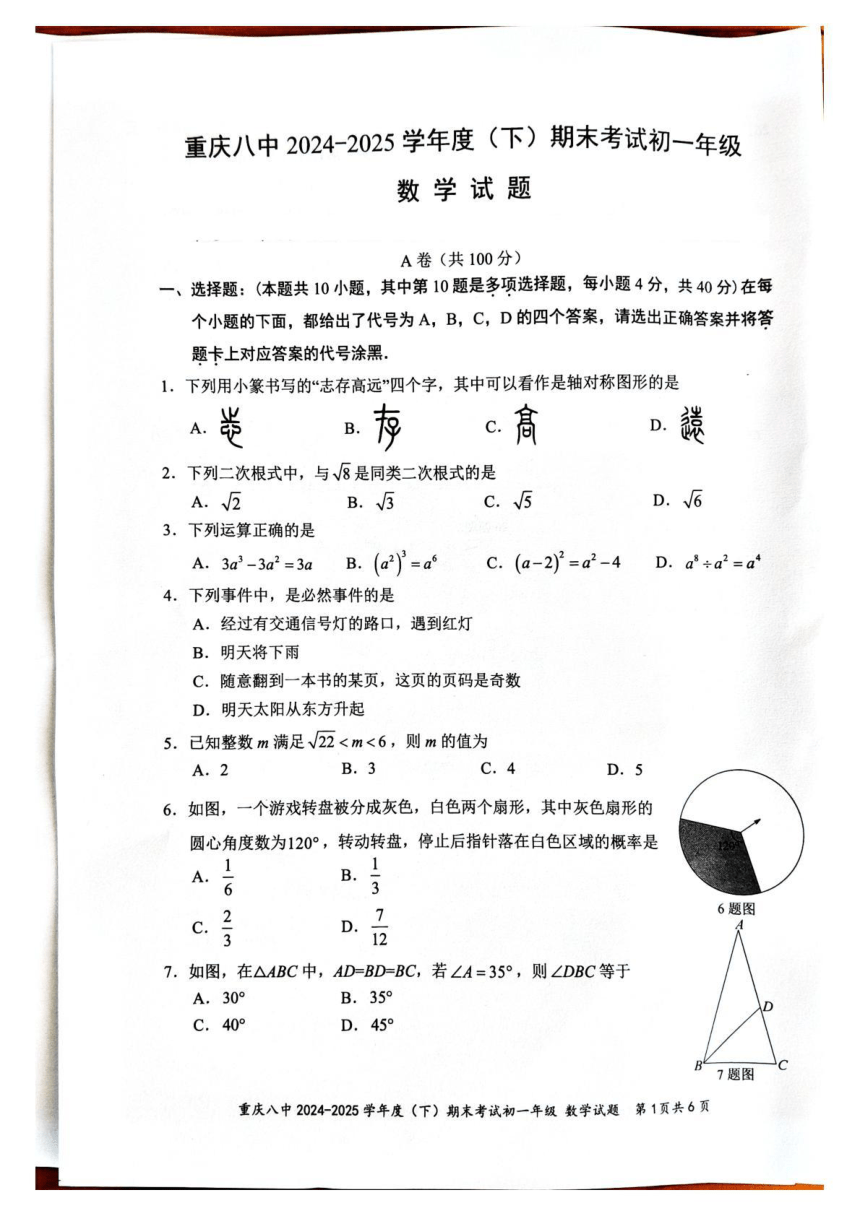 重庆八中 2024-2025 学年度（下）期末考试初一年级
数 学 试 题
A 卷（共 100 分）
一、选择题：（本题共 10 小题，其中第 10 题是多项选择题，每小题 4 分，共 40 分）在每
个小题的下面，都给出了代号为 A，B，C，D 的四个答案，请选出正确答案并将答
题卡上对应答案的代号涂黑．
1．下列用小篆书写的“志存高远”四个字，其中可以看作是轴对称图形的是
A．志 B．存 C．高 D．遠
2．下列二次根式中，与√8 是同类二次根式的是
A．√2 B．√3 C．√5 D．√6
3．下列运算正确的是
A．3a³－3a²＝3a B．(a²)³＝a⁶ C．(a－2)²＝a²－4 D．a⁸÷a²＝a⁴
4．下列事件中，是必然事件的是
A．经过有交通信号灯的路口，遇到红灯
B．明天将下雨
C．随意翻到一本书的某页，这页的页码是奇数
D．明天太阳从东方升起
5．已知整数 m 满足√22＜m＜6，则 m 的值为
A．2 B．3 C．4 D．5
6．如图，一个游戏转盘被分成灰色，白色两个扇形，其中灰色扇形的
圆心角度数为120°，转动转盘，停止后指针落在白色区域的概率是
A．1/6 B．1/3
C．2/3 D．7/12
120°
6 题图
7．如图，在△ABC 中，AD=BD=BC，若∠A＝35°，则∠DBC 等于
A．30° B．35°
C．40° D．45°
A
D
B C
7 题图
重庆八中 2024-2025 学年度（下）期末考试初一年级 数学试题 第 1页共 6 页